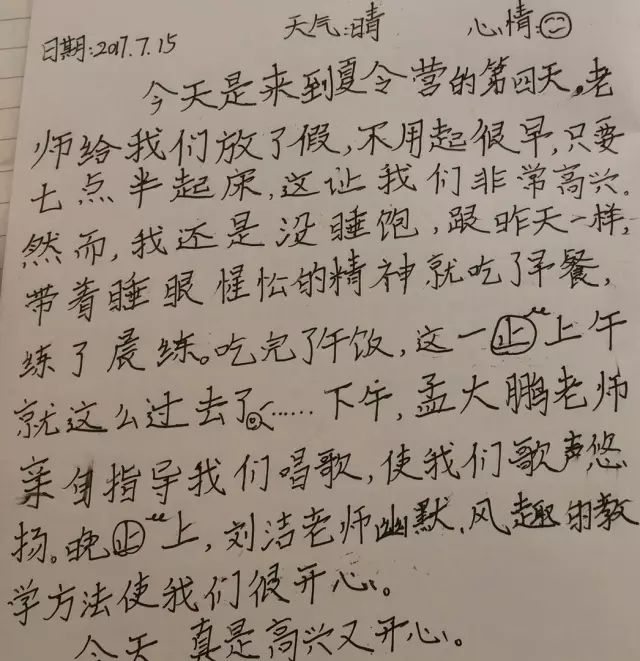 日期:2017.7.15 天气:晴 心情:☺
今天是来到夏令营的第四天,老
师给我们放了假,不用起很早,只要
七点半起床,这让我们非常高兴.
然而,我还是没睡饱,跟昨天一样,
带着睡眼惺忪的精神就吃了早餐,
练了晨练。吃完了午饭,这一上午
就这么过去了……下午,孟大鹏老师
亲自指导我们唱歌,使我们歌声悠
扬。晚上,刘洁老师幽默,风趣的教
学方法使我们很开心。
今天 真是高兴又开心。